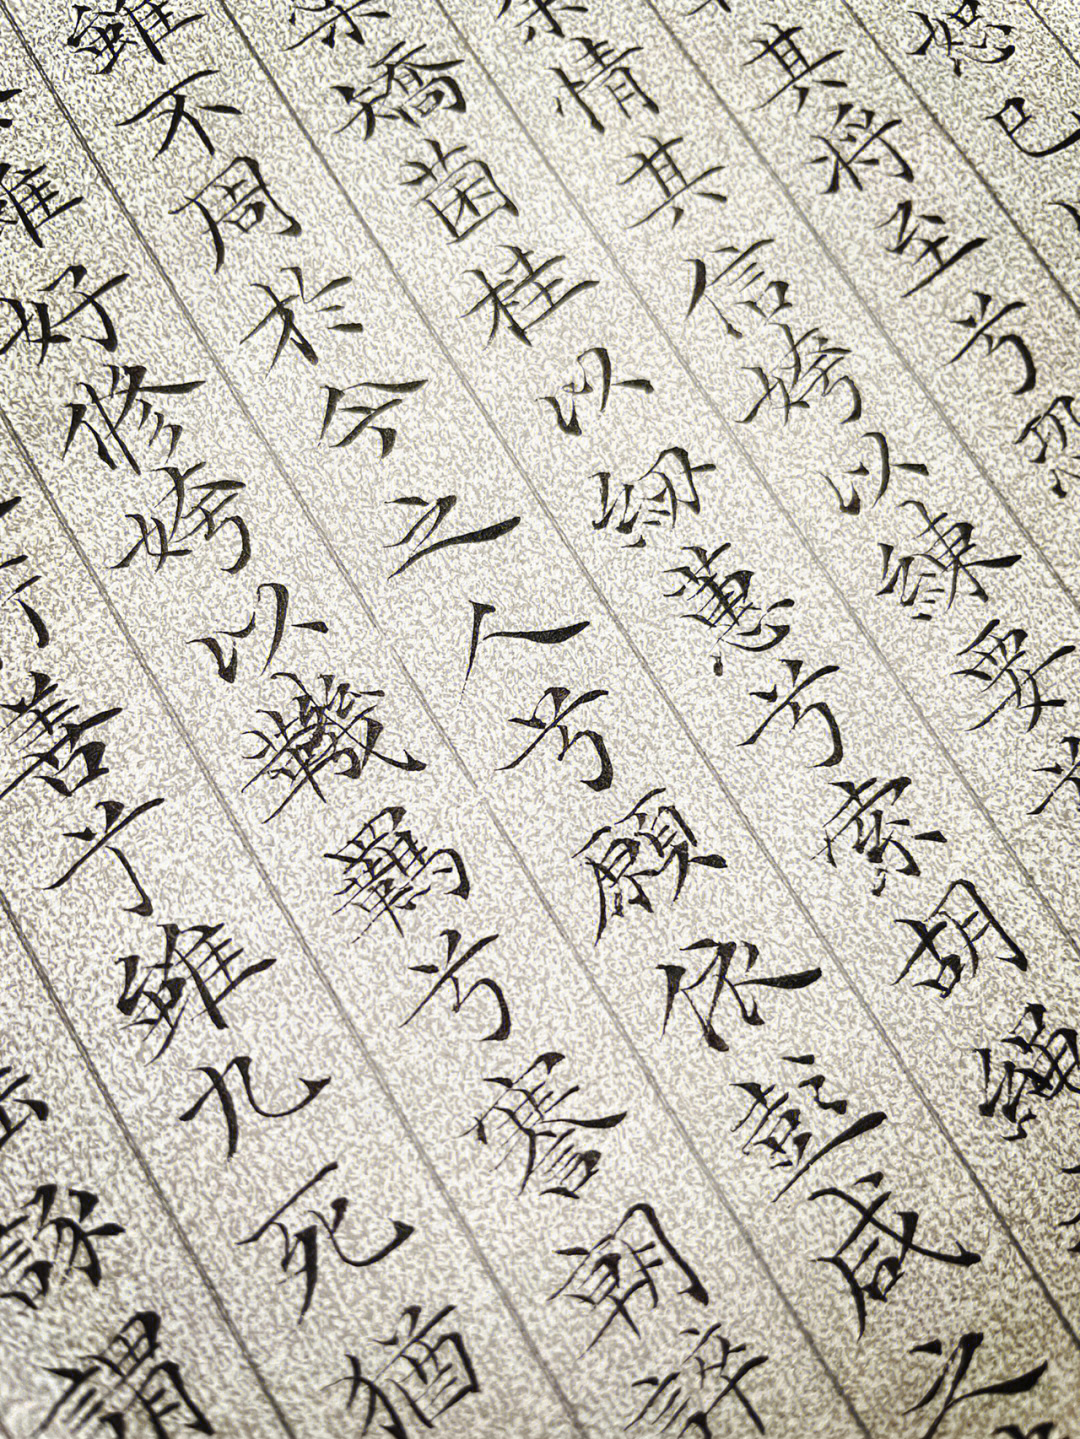 恕己
其將至兮恐
余情其信姱以練要兮
矯菌桂以紉蕙兮索胡繩
雖不周於今之人兮願依彭咸之
雖好修姱以鞿羈兮謇朝誶
善兮雖九死猶
諑謂